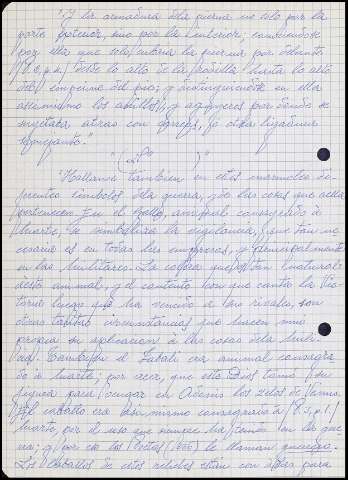 "Y la armadura dela pierna no solo por la
parte posterior, sino por la anterior;
por ella que solo cubria la pierna por delante
desde lo alto de la rodilla hasta lo alto
del empeine del pie; y distinguiendose en ella
los anillos, y agujeros por donde se
sujetaba, atras con correas, ó otra ligadura
semejante."
"Hallanse tambien en estos marmoles di-
ferentes simbolos dela guerra, y de las cosas que aella
pertenecen. En el Gallo, animal consagrado à
Marte, se simboliza la vigilancia, que tan ne-
cesaria es en todas las empresas, y principalmente
en las Militares. La colera que es tan natural a
deste animal, y el contento con que canta la Vic-
toria luego que ha vencido a los rivales, son
otras tantas circunstancias que hacen mui
propria su aplicacion à las cosas dela Mili-
cia. Tambien el Jabali era animal consagra-
do à Marte; por creer, que este Dios tomó su
figura para vengar en Adonis los zelos de Venus.
El caballo era asi mismo consagrado à
Marte, por el uso que siempre ha tenido en la gue-
rra; y por eso los Poetas le llaman guerrero.
Los Caballos de estos relieves están con alas para